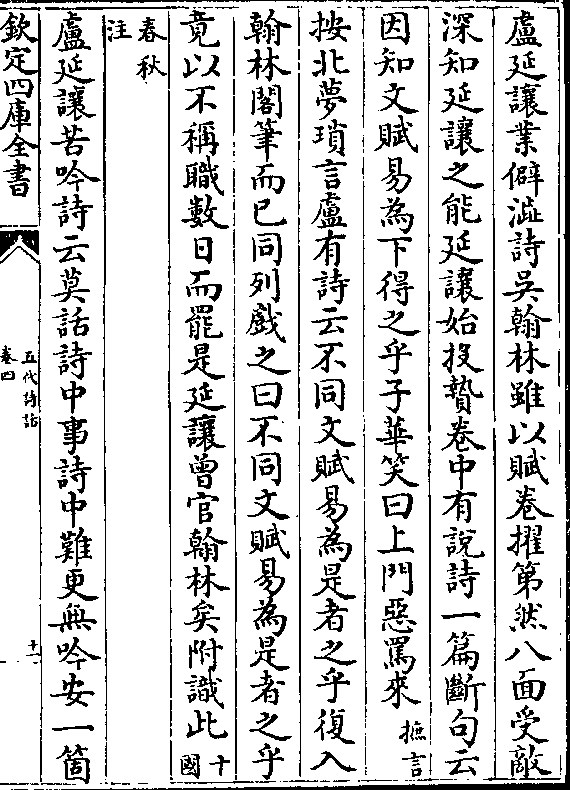 盧延讓業僻澁詩吳翰林雖以賦卷擢第然八面受敵
深知延讓之能延讓始投贄卷中有說詩一篇斷句云
因知文賦易為下得之乎子華笑曰上門惡罵來摭言
按北夢瑣言盧有詩云不同文賦易為是者之乎復入
翰林閣筆而已同列戲之曰不同文賦易為是者之乎
竟以不稱職數日而罷是延讓曾官翰林矣附識此十國
春秋注
盧延讓苦吟詩云莫話詩中事詩中難更無吟安一箇
欽定四庫全書
五代詩話
卷四
十一